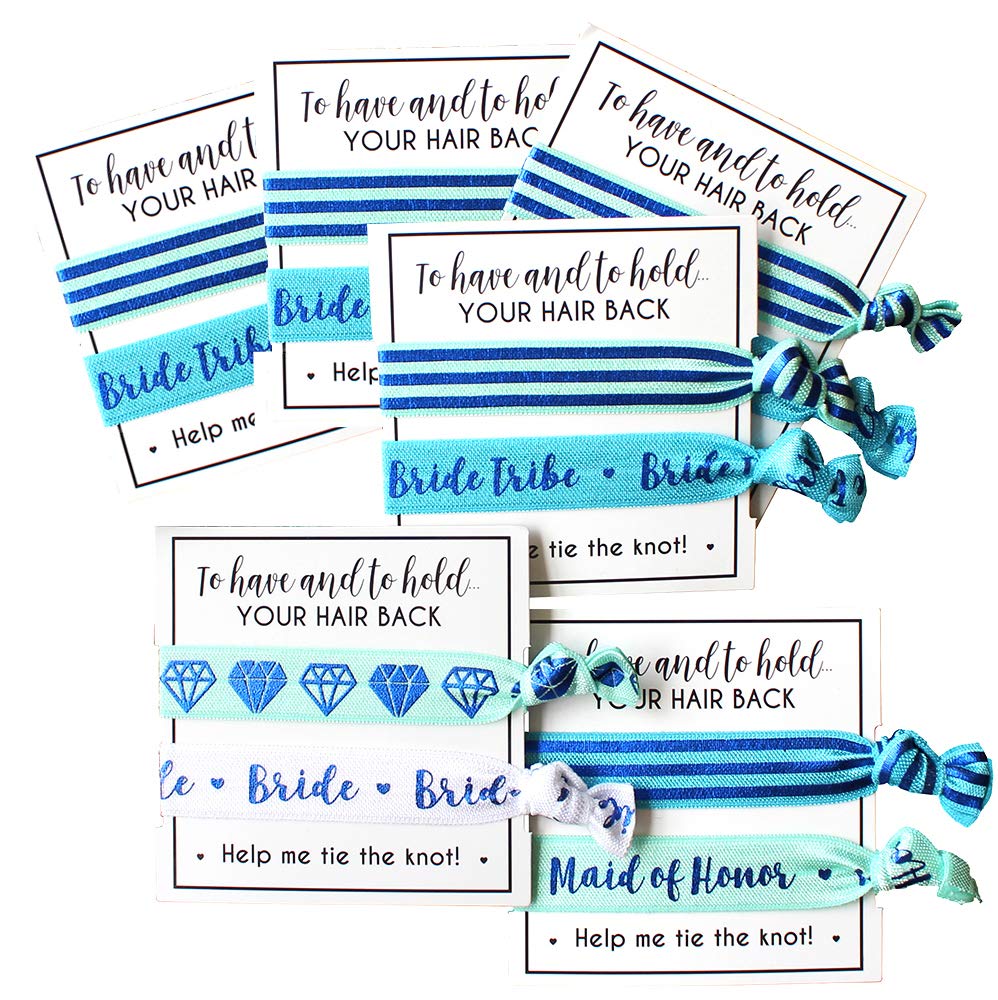 To have and t
YOUR HAIR
Bride Trib
Help me
To have and to ho
YOUR HAIR BACK
Bride
Help
To have and to hold...
YOUR HAIR BACK
To have and to hold...
YOUR HAIR BACK
Bride Tribe • Bride T
e tie the knot!
To have and to hold...
YOUR HAIR BACK
le ♥ Bride ♥ Brid
♥ Help me tie the knot! ♥
have and to hold...
YOUR HAIR BACK
Maid of Honor ♥
♥ Help me tie the knot! ♥